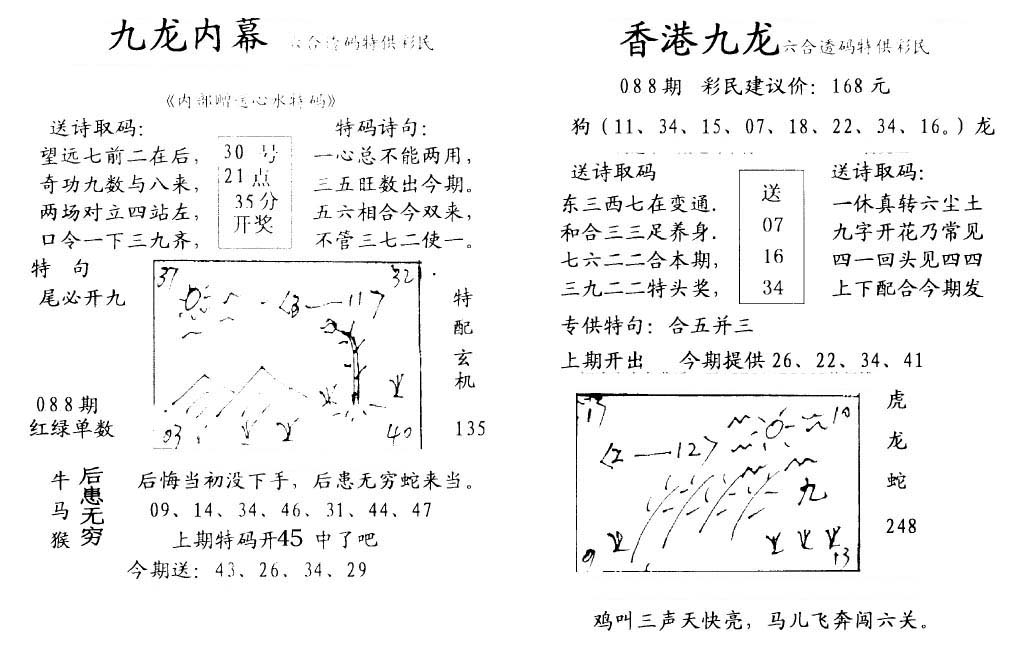 九龙内幕 六合透码特供彩民
《内部赠送心水特码》
送诗取码：
望远七前二在后，
奇功九数与八来，
两场对立四站左，
口令一下三九齐，
30 号
21点
35分
开奖
特码诗句：
一心总不能两用，
三五旺数出今期。
五六相合今双来，
不管三七二使一。
特 句
尾必开九
088期
红绿单数
37
32
03
40
特
配
玄
机
135
牛
马
猴
后患无穷
后悔当初没下手，后患无穷蛇来当。
09、14、34、46、31、44、47
上期特码开45 中了吧
今期送：43、26、34、29
香港九龙 六合透码特供彩民
088期 彩民建议价：168元
狗（11、34、15、07、18、22、34、16。）龙
送诗取码
东三西七在变通．
和合三三足养身．
七六二二合本期，
三九二二特头奖，
送
07
16
34
送诗取码：
一休真转六尘土
九字开花乃常见
四一回头见四四
上下配合今期发
专供特句：合五并三
上期开出 今期提供26、22、34、41
10
12
九
13
虎
龙
蛇
248
鸡叫三声天快亮，马儿飞奔闯六关。